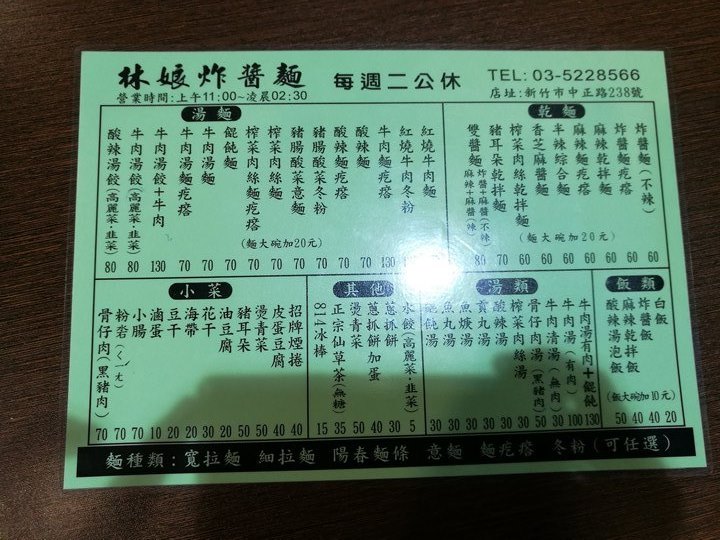 林娘炸醬麵
每週二公休
TEL: 03-5228566
營業時間:上午11:00~凌晨02:30
店址:新竹市中正路238號
乾麵
炸醬麵(不辣)
炸醬麵疙瘩
麻辣乾拌麵
麻辣麵疙瘩
半辣綜合麵
香芝麻醬麵
榨菜肉絲乾拌麵
豬耳朵乾拌麵
雙醬麵
炸醬+麻醬(不辣)
麻辣+麻醬(辣)
(麵大碗加20元)
80 70 60 60 60 60 60 60
湯麵
紅燒牛肉麵
紅燒牛肉冬粉
牛肉麵疙瘩
酸辣麵
酸辣麵疙瘩
豬腸酸菜冬粉
豬腸酸菜意麵
榨菜肉絲麵
榨菜肉絲麵疙瘩
餛飩麵
牛肉湯麵
牛肉湯麵疙瘩
牛肉湯餃+牛肉
牛肉湯餃(高麗菜.韭菜)
酸辣湯餃(高麗菜.韭菜)
(麵大碗加20元)
80 80 130 70 70 70 70 70 70 70 70 70
飯類
白飯
炸醬飯
麻辣乾拌飯
酸辣湯泡飯
(飯大碗加10元)
50 40 40 20
湯類
牛肉湯有肉+餛飩
牛肉湯(有肉)
牛肉清湯(無肉)
骨仔肉湯(黑豬肉)
榨菜肉絲湯
酸辣湯
貢丸湯
魚焿湯
魚丸湯
餛飩湯
30 30 30 30 30 30 50 30 100 130
其他
水餃(高麗菜.韭菜)
蔥抓餅
蔥抓餅加蛋
燙青菜
正宗仙草茶(無糖)
814冰棒
15 35 50 40 30 5
小菜
招牌煙捲
皮蛋豆腐
燙青菜
豬耳朵
油豆腐
花干
海帶
豆干
滷蛋
小腸
粉砻(ㄑㄧㄤ)
骨仔肉(黑豬肉)
70 70 70 10 20 20 30 20 50 50 40 30
麵種類:寬拉麵 細拉麵 陽春麵條 意麵 麵疙瘩 冬粉(可任選)